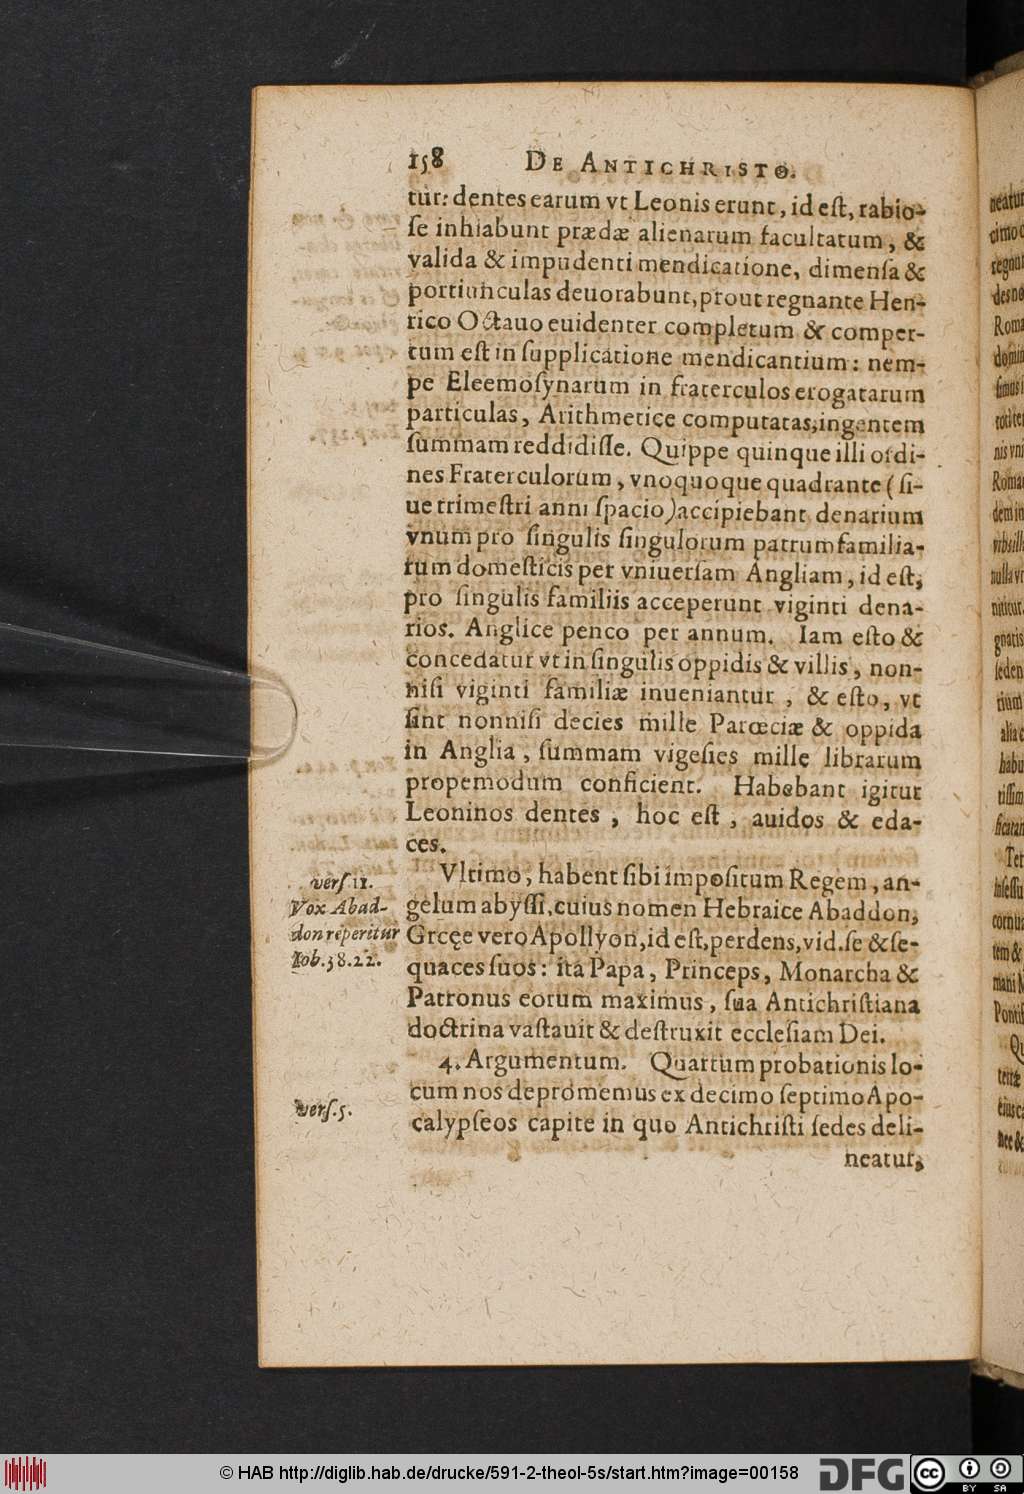 158 DE ANTICHRISTO.
tur: dentes earum vt Leonis erunt, id est, rabio-
se inhiabunt prædæ alienarum facultatum, &
valida & impudenti mendicatione, dimensa &
portiunculas deuorabunt, prout regnante Hen-
rico Octauo euidenter completum & comper-
tum est in supplicatione mendicantium: nem-
pe Eleemosynarum in fraterculos erogatarum
particulas, Arithmetice computatas, ingentem
summam reddidisse. Quippe quinque illi ordi-
nes Fraterculorum, vnoquoque quadrante (si-
ue trimestri anni spacio) accipiebant denarium
vnum pro singulis singulorum patrumfamilia-
rum domesticis per vniuersam Angliam, id est,
pro singulis familiis acceperunt viginti dena-
rios. Anglice penco per annum. Iam esto &
concedatur vt in singulis oppidis & villis, non-
nisi viginti familiæ inueniantur, & esto, vt
sint nonnisi decies mille Parœciæ & oppida
in Anglia, summam vigesies mille librarum
propemodum conficient. Habebant igitur
Leoninos dentes, hoc est, auidos & eda-
ces.
vers. 11.
Vox Abad-
don reperitur
Iob. 38. 22.
Vltimo, habent sibi impositum Regem, an-
gelum abyssi, cuius nomen Hebraice Abaddon,
Grcęe vero Apollyon, id est, perdens, vid. se & se-
quaces suos: ita Papa, Princeps, Monarcha &
Patronus eorum maximus, sua Antichristiana
doctrina vastauit & destruxit ecclesiam Dei.
4. Argumentum. Quartum probationis lo-
cum nos depromemus ex decimo septimo Apo-
vers. 5.
calypseos capite in quo Antichristi sedes deli-
neatur,
© HAB http://diglib.hab.de/drucke/591-2-theol-5s/start.htm?image=00158
DFG
CC BY SA